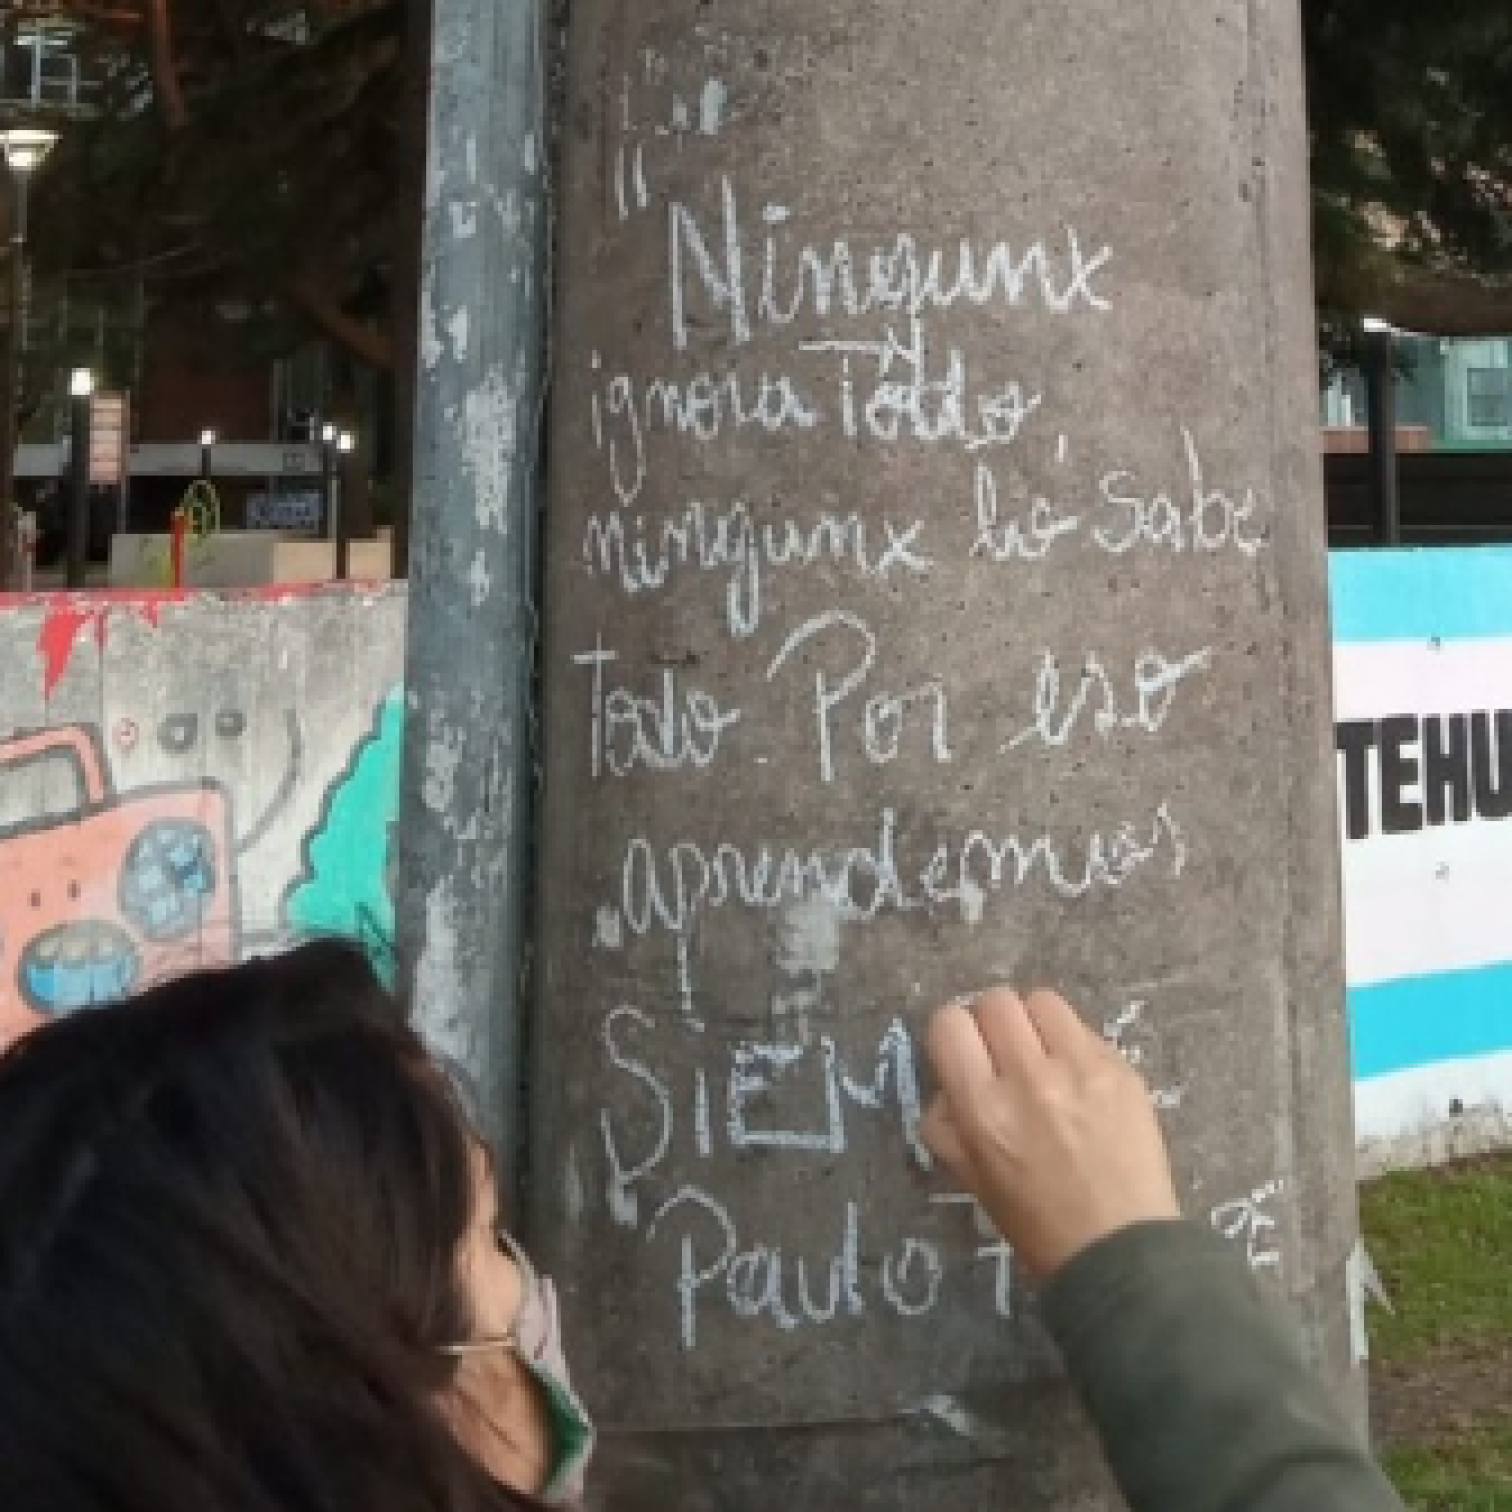 "Ningunx
ignora Todo,
ningunx lo Sabe
Todo. Por eso
aprendemos
SIEM
Paulo F
TEHU